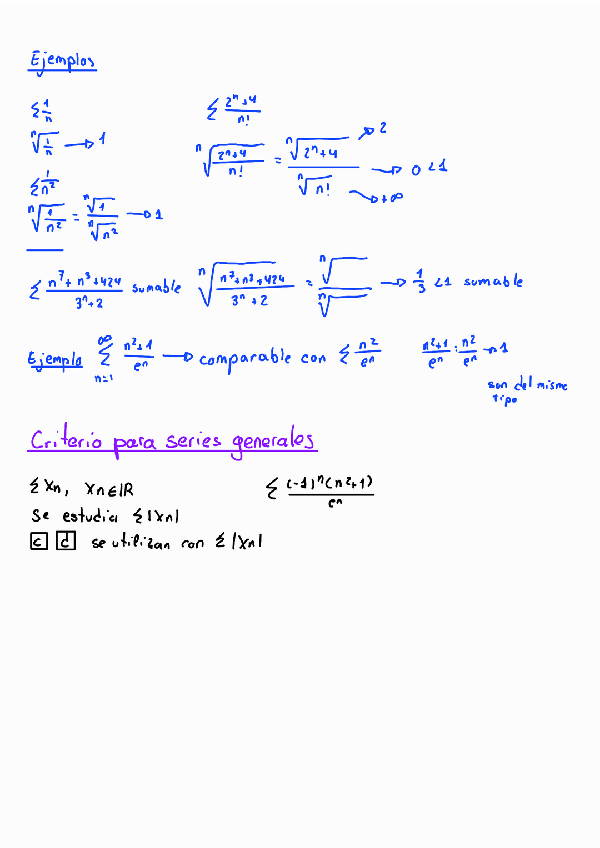 Ejemplos
Σ 1/n
ⁿ√(1/n) → 1
Σ 1/n²
ⁿ√(1/n²) = ⁿ√1 / ⁿ√n² → 1
Σ (2ⁿ+4)/n!
ⁿ√((2ⁿ+4)/n!) = ⁿ√(2ⁿ+4) / ⁿ√n! → 0 < 1
→ 2
→ +∞
Σ (n⁷+n³+424)/(3ⁿ+2) sumable ⁿ√((n⁷+n³+424)/(3ⁿ+2)) = ⁿ√ / ⁿ√ → 1/3 < 1 sumable
Ejemplo ∞ Σ n=1 (n²+1)/eⁿ → comparable con Σ n²/eⁿ (n²+1)/eⁿ : n²/eⁿ → 1
son del mismo
tipo
Criterio para series generales
Σ Xn, Xn ∈ ℝ
Se estudia Σ |Xn|
c d se utilizan con Σ |Xn|
Σ (-1)ⁿ(n²+1)/eⁿ